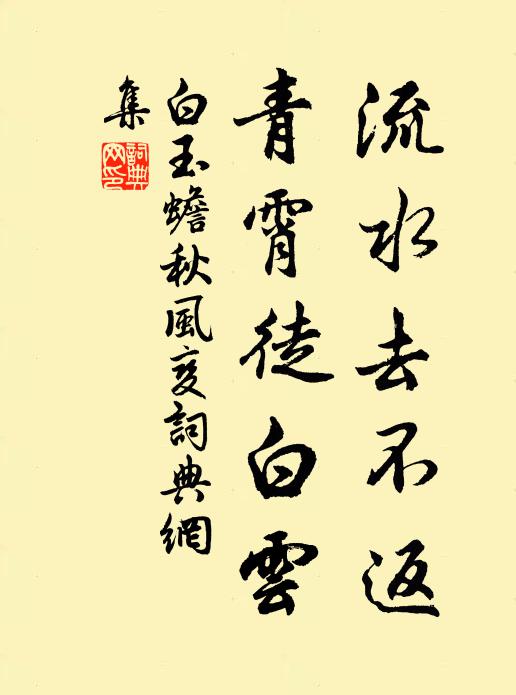 流水去不返
青霄徒白雲
白玉蟾秋風変詞典網
集
詞典
网印